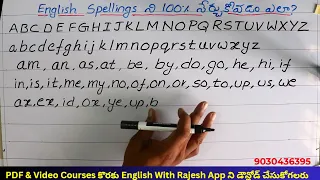 English Spellings ని 100% నేర్చుకోవడం ఎలా?
A B C D E F G H I J K L M N O P Q R S T U V W X Y Z
a b c d e f g h i j k l m n o p q r s t u v w x y z
am, an, as, at, be, by, do, go, he, hi, if
in, is, it, me, my, no, of, on, or, so, to, up, us, we
ax, ex, id, ox, ye, up, b
9030436395
PDF & Video Courses కొరకు English With Rajesh App ని డౌన్లోడ్ చేసుకోగలరు